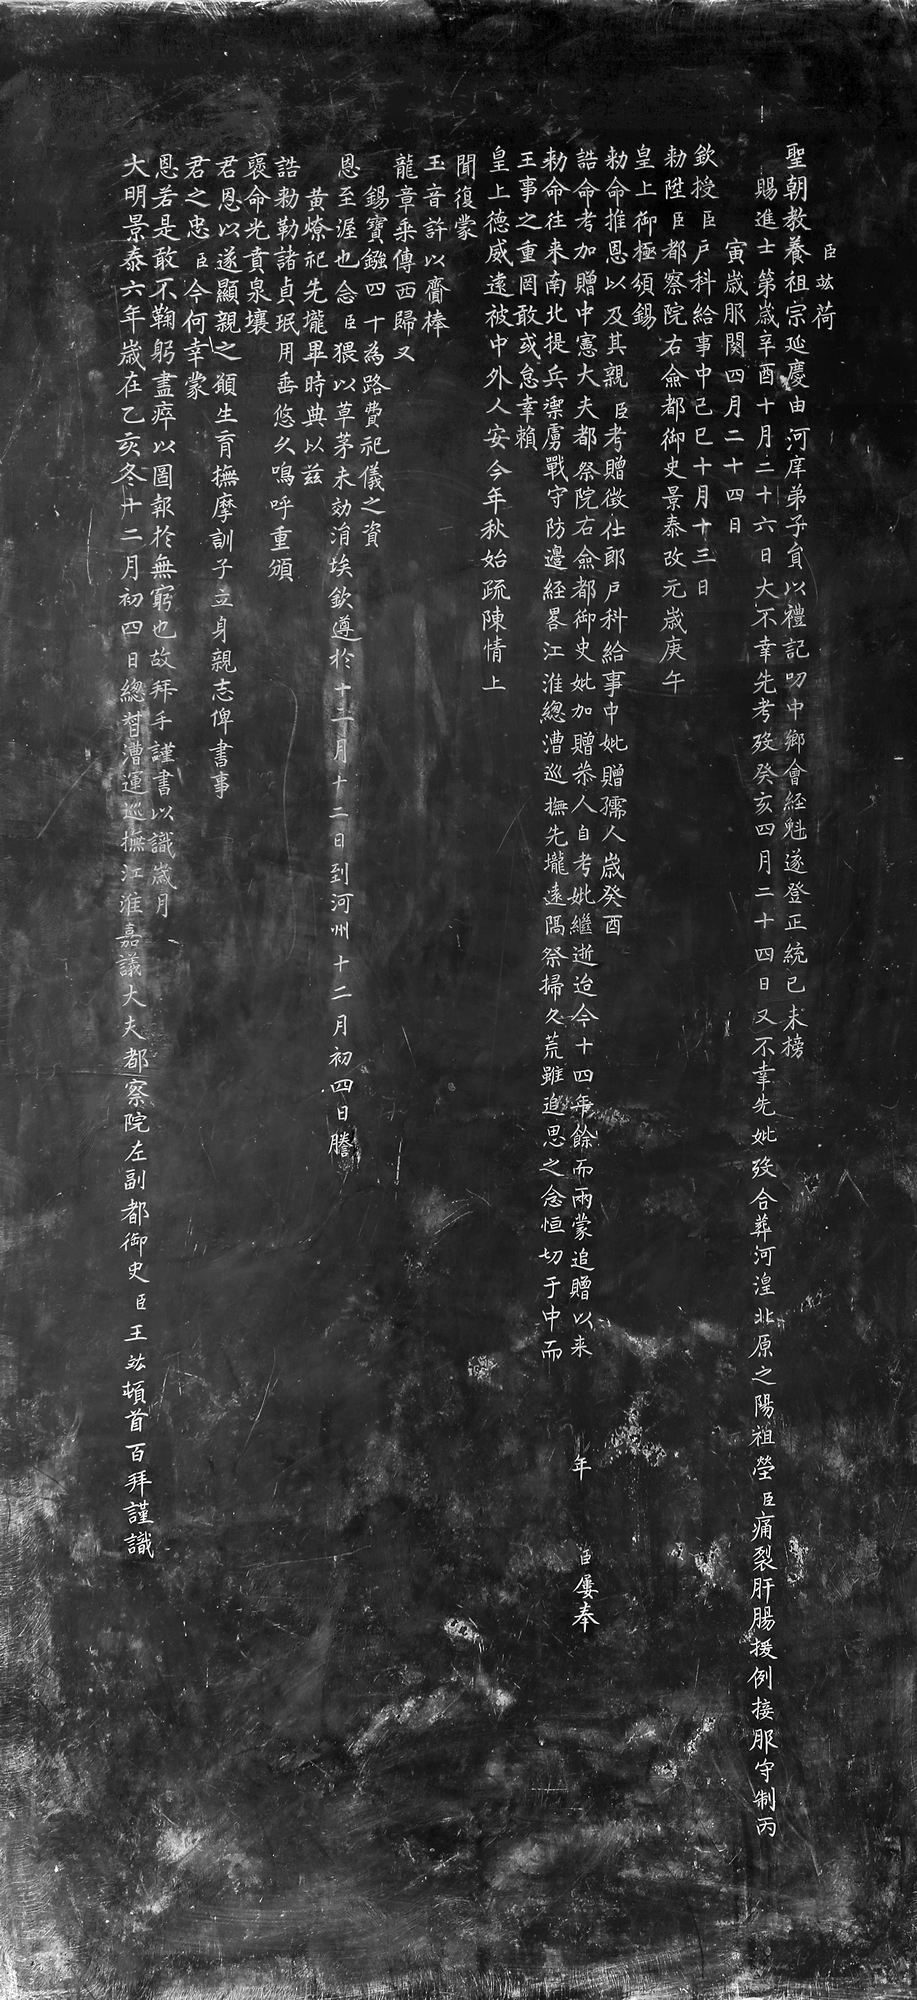 臣竑荷
聖朝教養祖宗延慶由河庠弟子員以禮記叨中鄉會經魁遂登正統己未榜
賜進士第歲辛酉十月二十六日大不幸先考歿癸亥四月二十四日又不幸先妣歿合葬河湟北原之陽祖塋臣痛裂肝腸援例接服守制丙
寅歲服闋四月二十四日
欽授臣戶科給事中己巳十月十三日
勑陞臣都察院右僉都御史景泰改元歲庚午
皇上御極須錫
勑命推恩以及其親臣考贈徵仕郎戶科給事中妣贈孺人歲癸酉
誥命考加贈中憲大夫都察院右僉都御史妣加贈恭人自考妣繼逝迨今十四年餘而兩蒙追贈以来年臣屢奉
勑命往来南北提兵禦虜戰守防邊經畧江淮總漕巡撫先壠遠隔祭掃久荒雖追思之念恒切于中而
王事之重罔敢或怠幸賴
皇上德威遠被中外人安今年秋始疏陳情上
聞復蒙
玉音許以齎捧
龍章乘傳西歸又
錫寶鏹四十為路費祀儀之資
恩至渥也念臣猥以草茅未効涓埃欽遵於十二月十二日到河州十二月初四日謄
黃燎祀先壠畢時典以兹
誥勑勒諸貞珉用垂悠久嗚呼重頒
褒命光賁泉壤
君恩以遂顯親之願生育撫摩訓子立身親志俾書事
君之忠臣今何幸蒙
恩若是敢不鞠躬盡瘁以圖報於無窮也故拜手謹書以識歲月
大明景泰六年歲在乙亥冬十二月初四日總督漕運巡撫江淮嘉議大夫都察院左副都御史臣王竑頓首百拜謹識